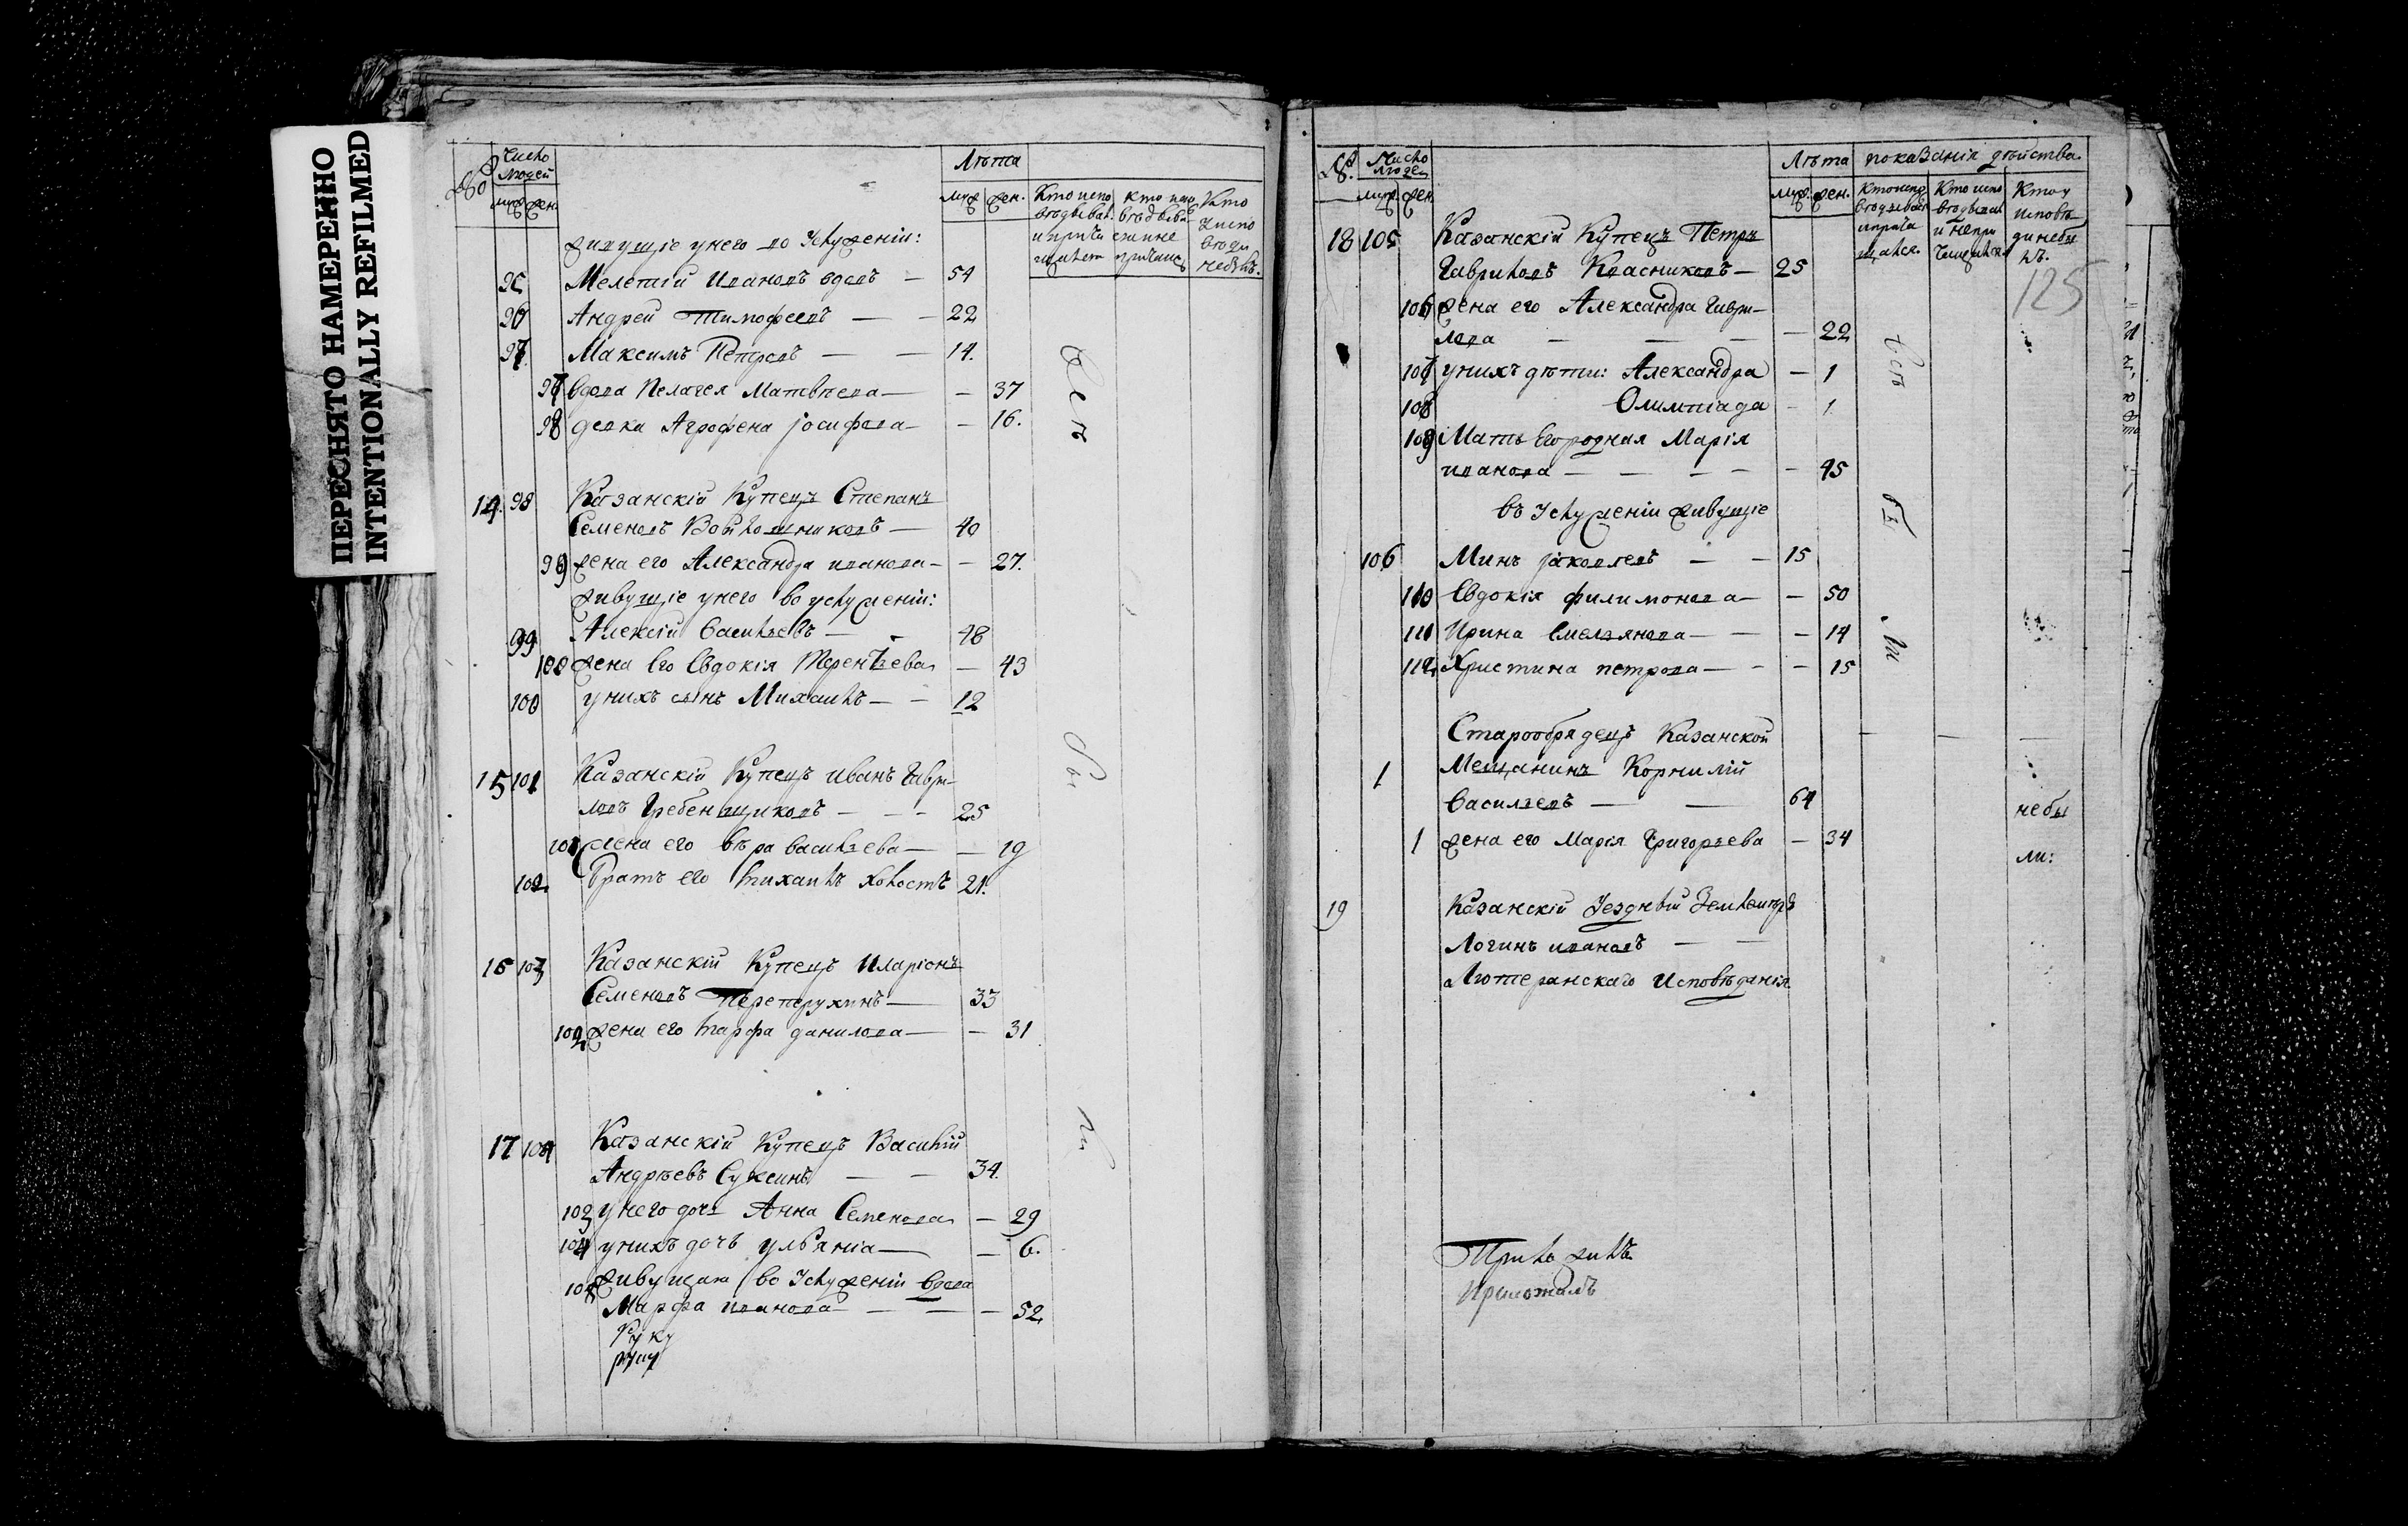 ПЕРЕСНЯТО НАМЕРЕННО
INTENTIONALLY REFILMED
№
Число
людей
муж жен.
Лѣта
муж жен.
Кто испо
Кто
живущіе у него во услуженіи:
95 Мелетій Ивановъ вдовъ — 54
96 Андрей Тимофеевъ — — 22
97 Максимъ Петровъ — — 14.
97 вдова Пелагея Матвѣева — — 37
98 девка Агрофена Іосифова — — 16.
14. 98 Казанскій Купецъ Степанъ
Семеновъ — 40
99 жена его Александра иванова — — 27.
живущіе у него во услуженіи:
99 Алексій Васильевъ — - 48
100 жена Его Евдокія Терентьева — 43
100 у нихъ сынъ Михаилъ — - 12
15 101 Казанскій Купецъ иванъ Гаври-
ловъ Гребенщиковъ — - - 25
101 жена его вѣра васильева — — 19
102 Братъ его михаилъ холостъ 21.
16 103 Казанскій Купецъ Иларіонъ
Семеновъ — 33
102 жена его марфа данилова — — 31
17 104 Казанскій Купецъ Василій
Андрѣевъ Суксинъ — — 34.
103 у него Анна Семенова — 29
104 у нихъ дочь ульянія — — 6.
105 живущая во Услуженіи вдова
Марфа иванова — — — 52
Руку
№.
Число
людей
муж. жен
Лѣта
муж. жен.
показанія дѣйства.
125
18 105 Казанскій Купецъ Петръ
Гавриловъ Квасниковъ — 25
106 жена его Александра Гаври-
лова — — — — 22
107 у нихъ дѣти: Александра — 1
108 Олимпіада — 1
109 Мать Его родная Марія
иванова — — — — 45
въ Услуженіи живущіе
106 Минъ Іаковлевъ — — 15
110 Евдокія филимонова — — 50
111 Ирина Емельянова — — — 14
112 Христина петрова — - — 15
Старообрядецъ Казанской
1 Мещанинъ Корнилій
Васильевъ — — 64
небы
1 жена его Марія Григорьева — 34
ли:
19 Казанскій Уездный Землемѣръ
Логинъ ивановъ — —
Лютеранскаго Исповѣданія